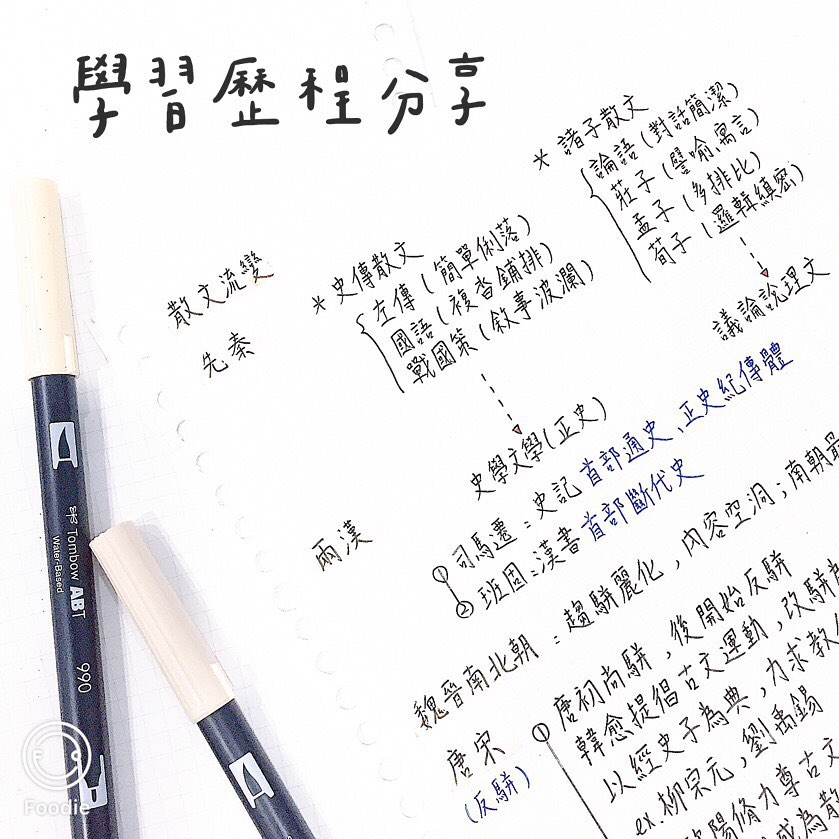 學習歷程分享
散文流變
先秦
* 史傳散文
左傳(簡單俐落)
國語(複沓鋪排)
戰國策(敘事波瀾)
史學文學(正史)
* 諸子散文
論語(對話簡潔)
莊子(譬喻,寓言)
孟子(多排比)
荀子(邏輯縝密)
議論說理文
兩漢
① 司馬遷:史記 首部通史、正史紀傳體
② 班固:漢書 首部斷代史
魏晉南北朝:趨駢麗化,內容空洞;南朝最
唐宋
(反駢)
① 唐初尚駢,後開始反駢
韓愈提倡古文運動,改駢為
以經史子為典,力求教化
ex.柳宗元,劉禹錫
歐陽脩力尊古文
成為散
Tombow ABT
Water-Based
990
Foodie